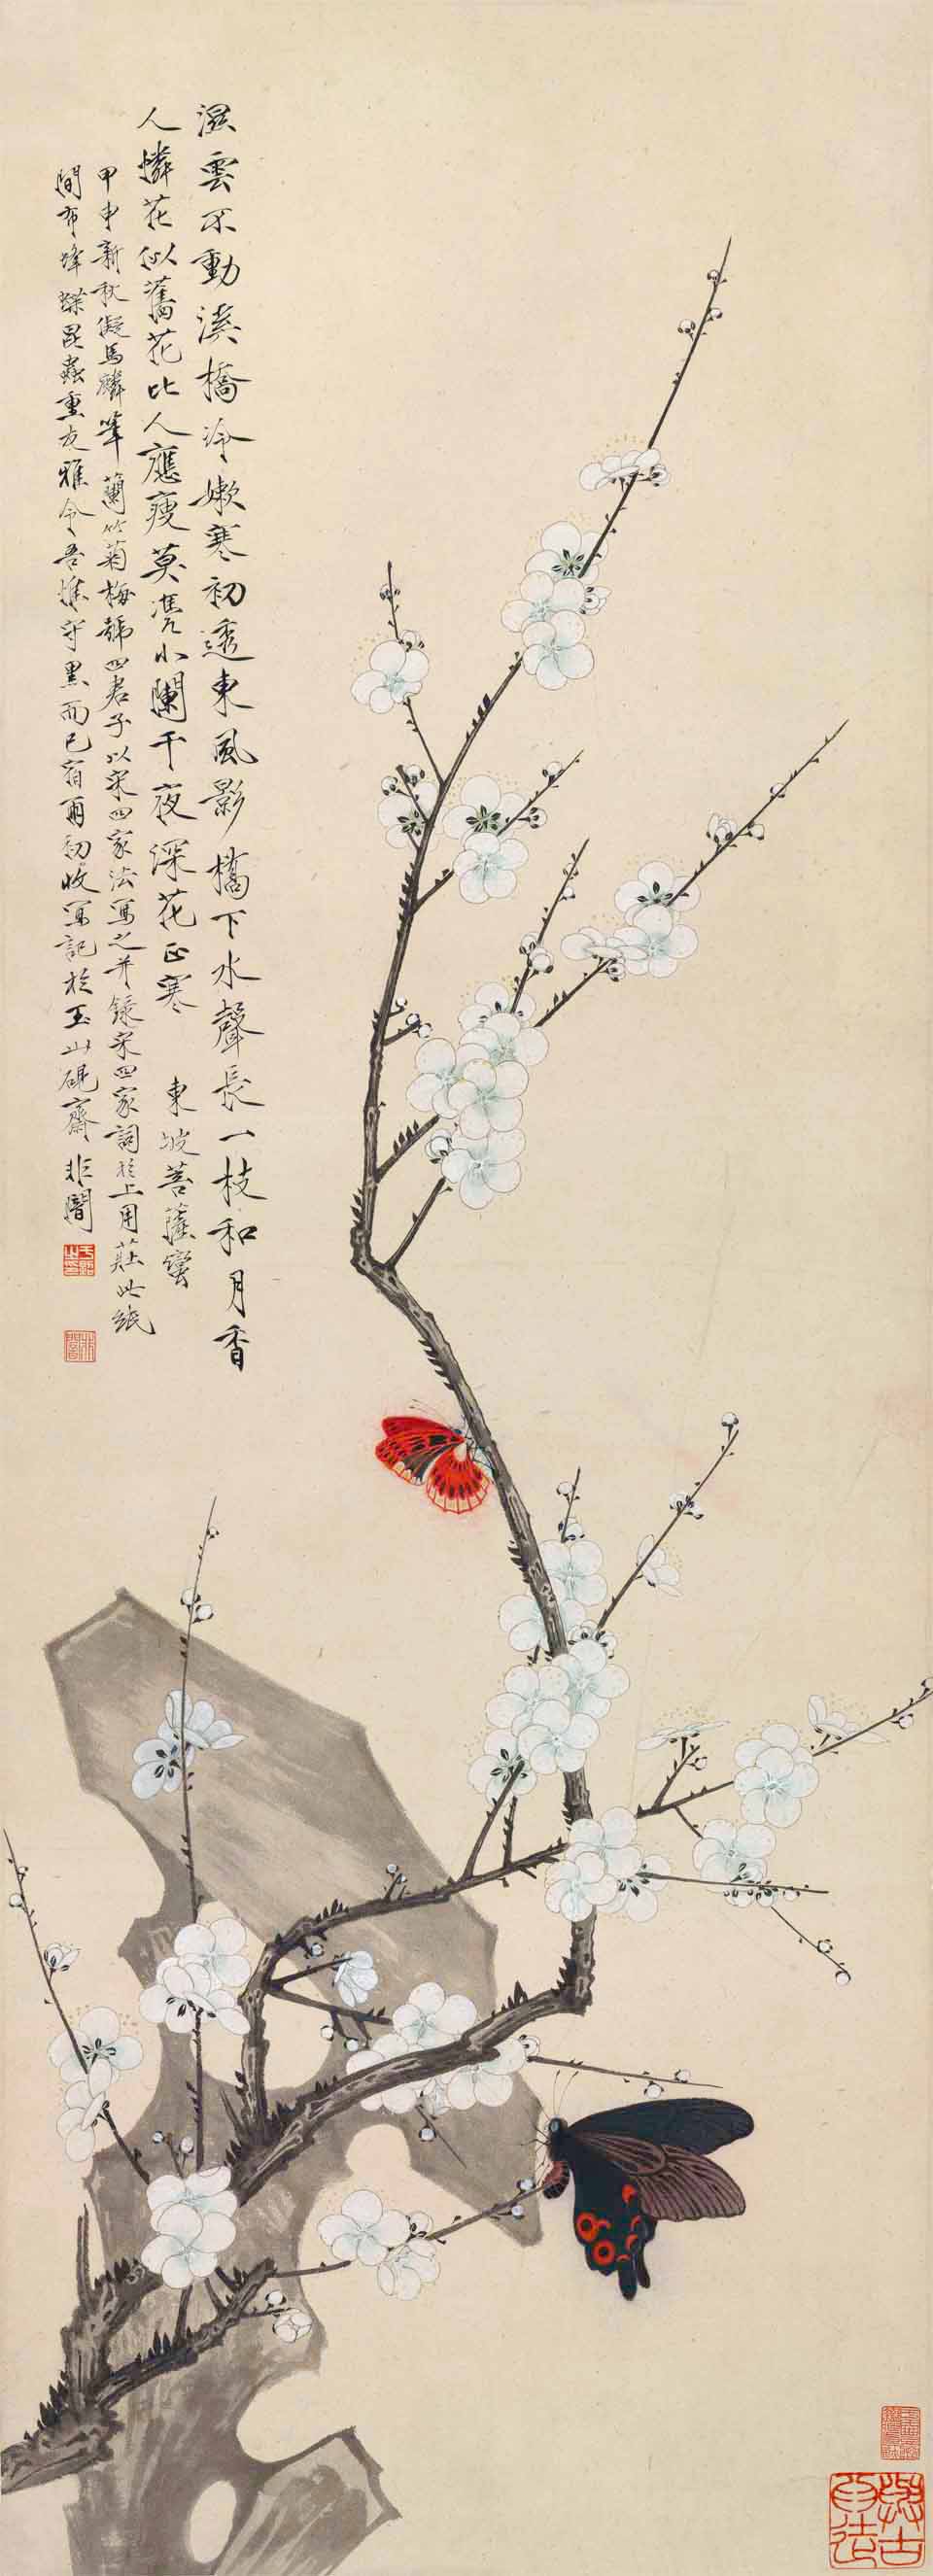 濕雲不動溪橋冷嫩寒初透東風影橋下水聲長一枝和月香
人憐花似舊花比人應瘦莫凭小闌干夜深花正寒　東坡菩薩蠻
甲申新秋儗馬麟筆蘭竹菊梅號四君子以宋四家法寫之并錄宋四家詞於上用莊此紙
間有蜂蝶昆蟲重友雅令吾惟守黑而已宿雨初收寫記於玉山硯齋非闇
非闇